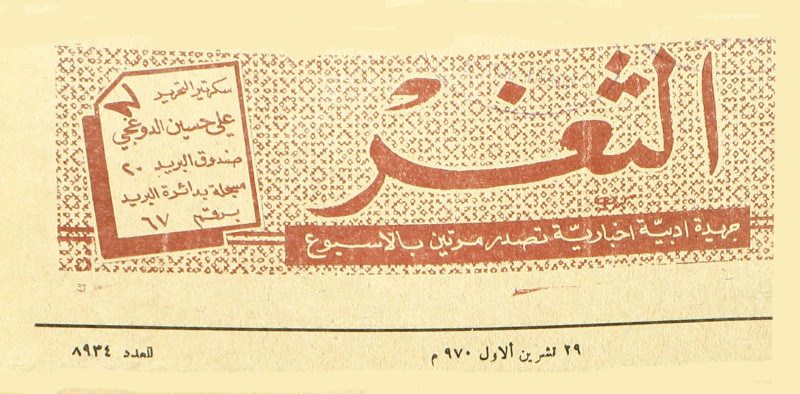 الثغر
جريدة ادبيّة اخباريّة تصدر مرّتين بالاسبوع
سكرتير التحرير
علي حسين الدوغجي
صندوق البريد ٢٠
مسجلة بدائرة البريد
برقم ٦٧
٢٩ تشرين الاول ٩٧٠ م
العدد ٨٩٣٤